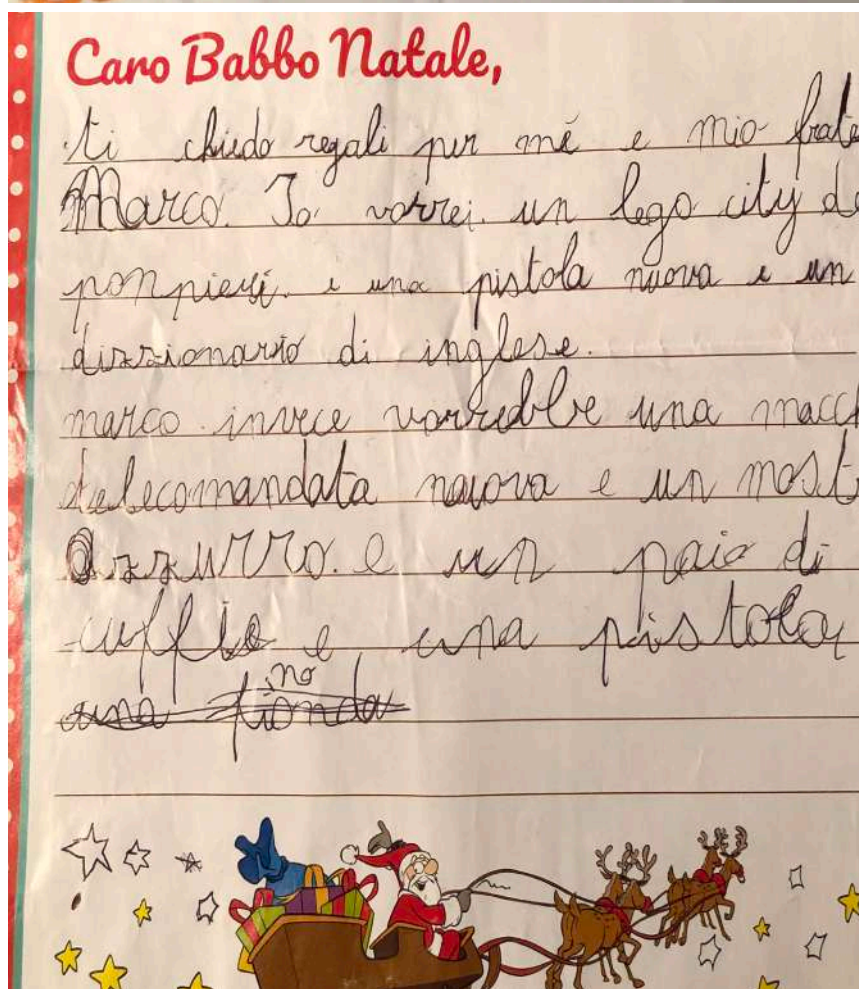 Caro Babbo Natale,
ti chiedo regali per mé e mio frate
Marco. Io vorrei un lego city de
ponpieri. e una pistola nuova e un
dizzionario di inglese.
marco invece vorredbbe una macch
telecomandata nuova e un most
azzurro. e un paio di
cuffie e una pistola
una fionda
no